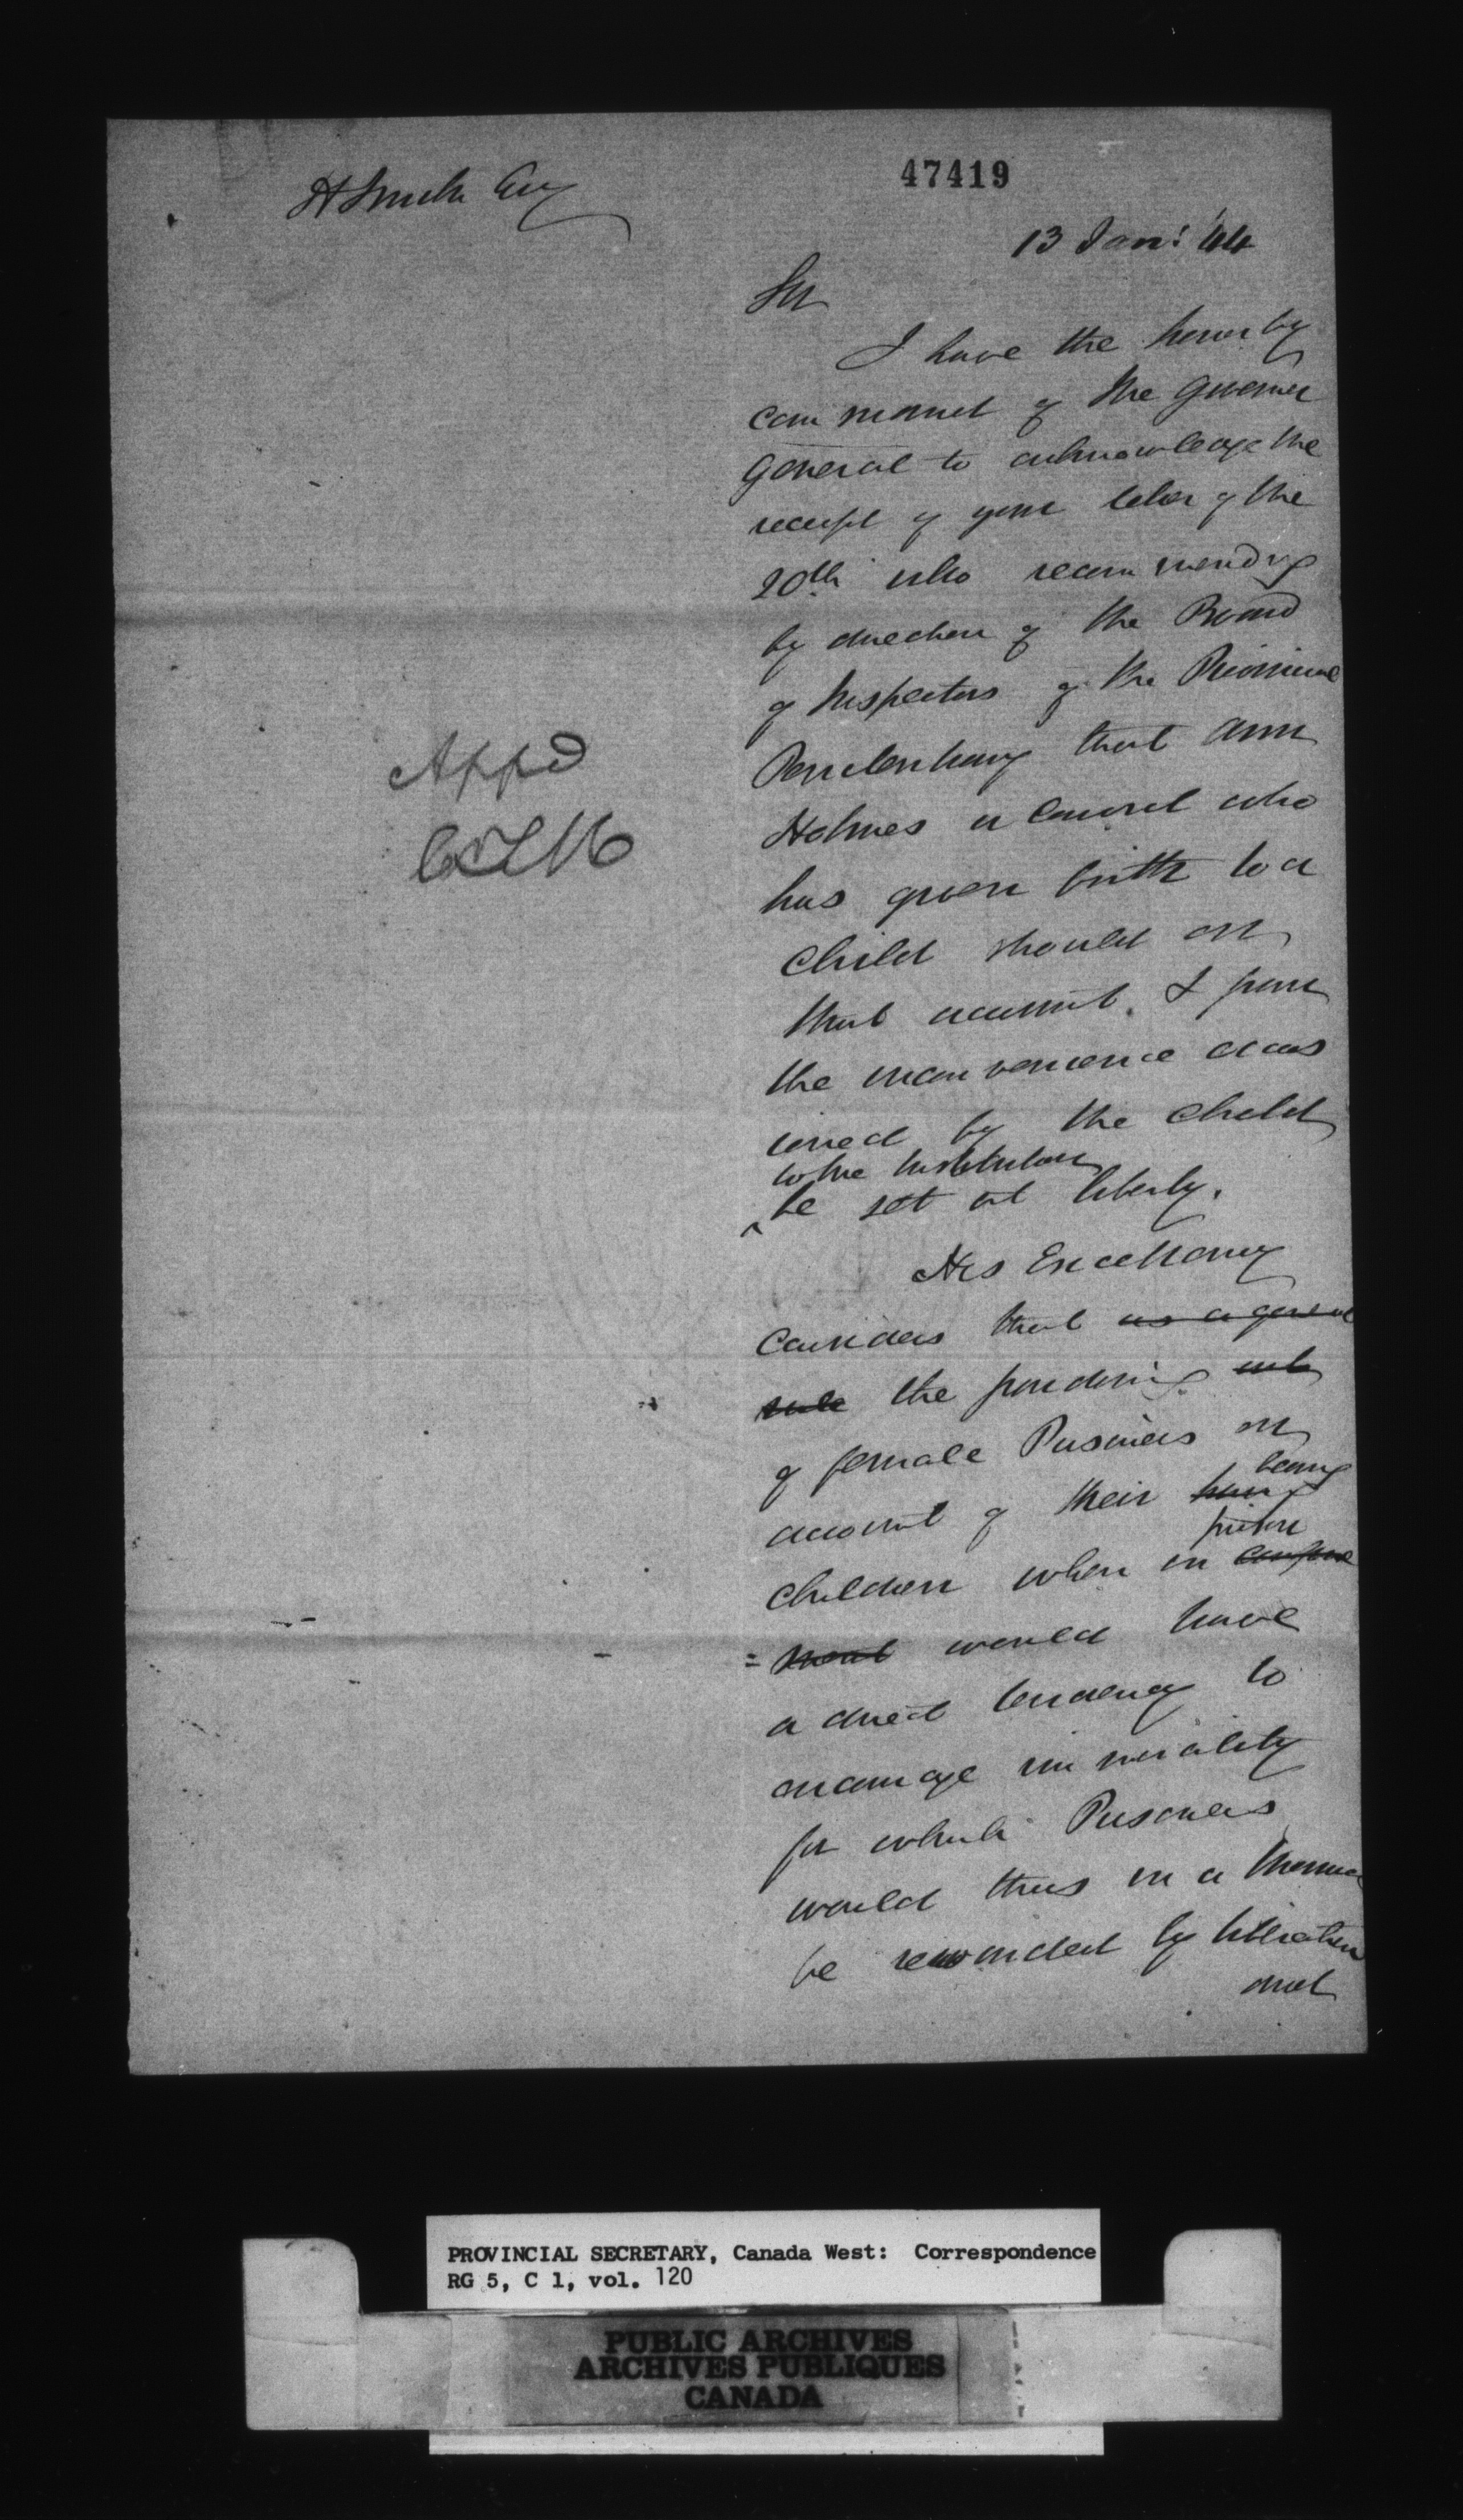 47419
H Smith Esq
13 Jany 44
Sir
I have the honor by
command of the Governor
General to acknowledge the
receipt of your letter of the
20th ulto recommending
by direction of the Board
of Inspectors of the Provincial
Penitentiary that Ann
Holmes a convict who
has given birth to a
child should on
that account & from
the inconvenience occas
ioned by the child
to the Institution
be set at liberty.
Appd
His Excellency
considers that as a general
rule the pardoning
of female Prisoners on
account of their having being
children when in confine prison
=ment would have
a direct tendency to
encourage immorality
for which Prisoners
would thus in a manner
be rewarded by liberation
and
PROVINCIAL SECRETARY, Canada West: Correspondence
RG 5, C 1, vol. 120
PUBLIC ARCHIVES
ARCHIVES PUBLIQUES
CANADA